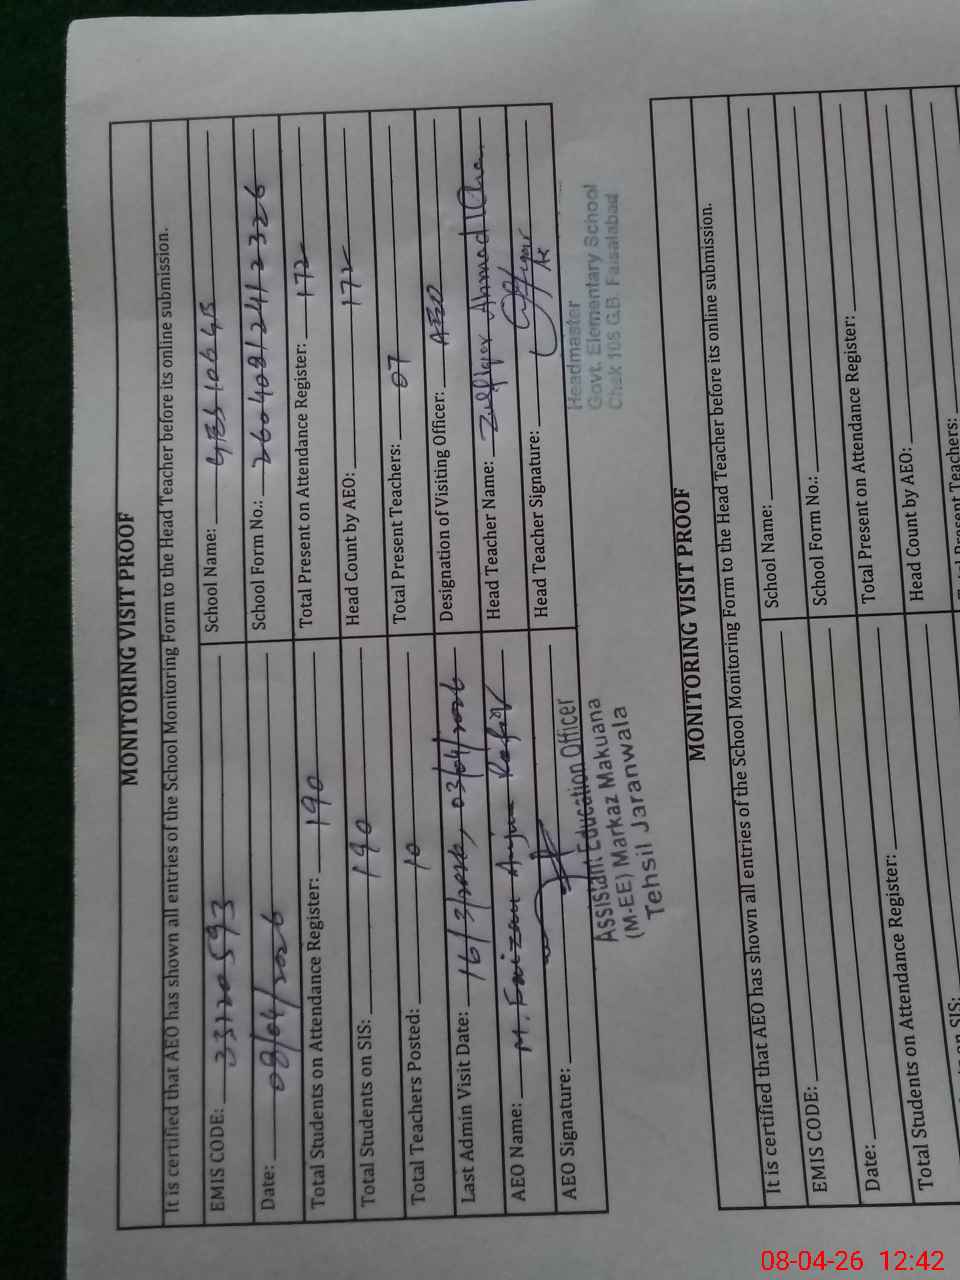 MONITORING VISIT PROOF
It is certified that AEO has shown all entries of the School Monitoring Form to the Head Teacher before its online submission.
EMIS CODE: 33120593 School Name: GES 106 GB
Date: 08/04/2026 School Form No.: 26040812412326
Total Students on Attendance Register: 190 Total Present on Attendance Register: 172
Total Students on SIS: 190 Head Count by AEO: 172
Total Teachers Posted: 10 Total Present Teachers: 07
Last Admin Visit Date: 16/3/2026, 03/04/2026 Designation of Visiting Officer: AEO
AEO Name: M. Faizan Anjum Rafiq Head Teacher Name: Ahmad
AEO Signature: Head Teacher Signature:
Assistant Education Officer
(M-EE) Markaz Makuana
Tehsil Jaranwala
Headmaster
Govt. Elementary School
Chak 106 G.B. Faisalabad
MONITORING VISIT PROOF
It is certified that AEO has shown all entries of the School Monitoring Form to the Head Teacher before its online submission.
EMIS CODE: School Name:
Date: School Form No.:
Total Students on Attendance Register: Total Present on Attendance Register:
on SIS: Head Count by AEO:
Present Teachers:
08-04-26 12:42